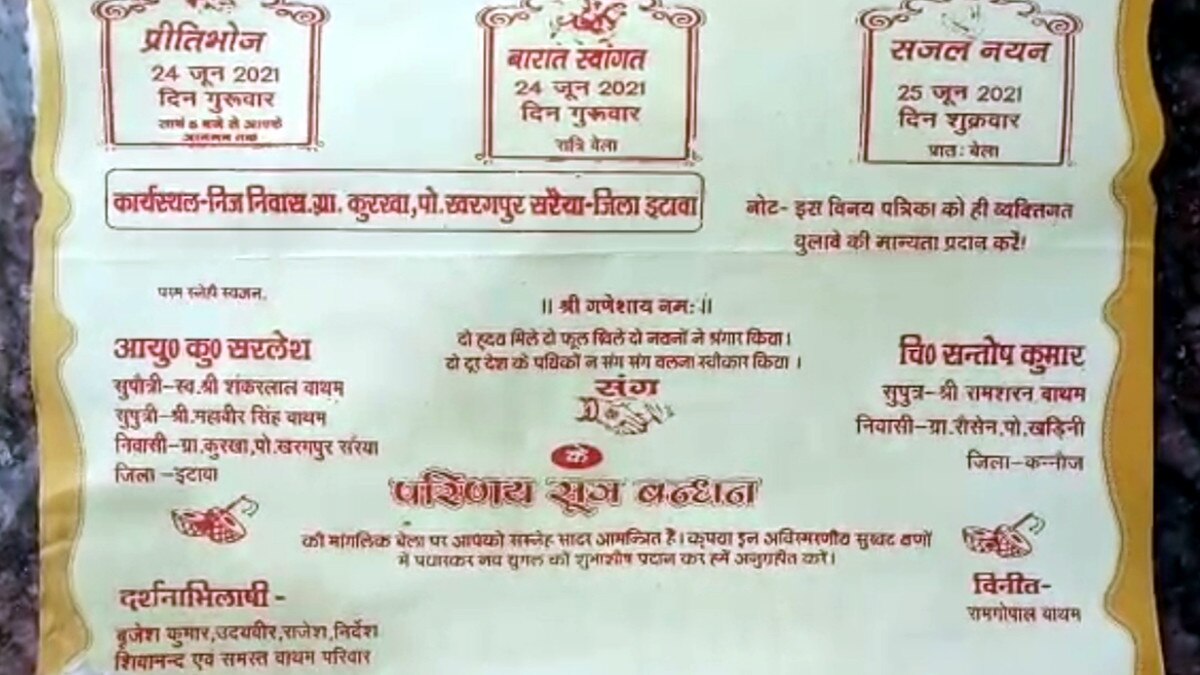 प्रीतिभोज
24 जून 2021
दिन गुरूवार
सायं 5 बजे से आपके
आगमन तक
बारात स्वांगत
24 जून 2021
दिन गुरूवार
रात्रि वेला
सजल नयन
25 जून 2021
दिन शुक्रवार
प्रात: बेला
कार्यस्थल-निज निवास.ग्रा. कुरखा,पो.खरगपुर सरैया-जिला इटावा
नोट- इस विनय पत्रिका को ही व्यक्तिगत
वुलावे की मान्यता प्रदान करें!
परम स्नेही स्वजन,
।। श्री गणेशाय नम: ।।
दो हृदय मिले दो फूल खिले दो नयनों ने श्रंगार किया।
दो दूर देश के पथिकों न संग संग चलना स्वीकार किया ।
आयु0 कु0 सरलेश
सुपौत्री-स्व.श्री शंकरलाल वाथम
सुपुत्री-श्री.महावीर सिंह वाथम
निवासी-ग्रा.कुरखा,पो.खरगपुर सरैया
जिला -इटावा
संग
चि0 सन्तोष कुमार
सुपुत्र-श्री रामशरन वाथम
निवासी-ग्रा.रौसेन.पो.खड़िनी
जिला-कन्नौज
के
परिणय सूत्र बन्धन
की मांगलिक बेला पर आपको सस्नेह सादर आमन्त्रित है। कृपया इन अविस्मरणीय सुखद क्षणों
में पधारकर नव युगल को शुभाशीष प्रदान कर हमें अनुग्रहीत करें।
दर्शनाभिलाषी -
बृजेश कुमार,उदयवीर,राजेश,निर्देश
शिवानन्द एव समस्त वाथम परिवार
विनीत-
रामगोपाल वाथम